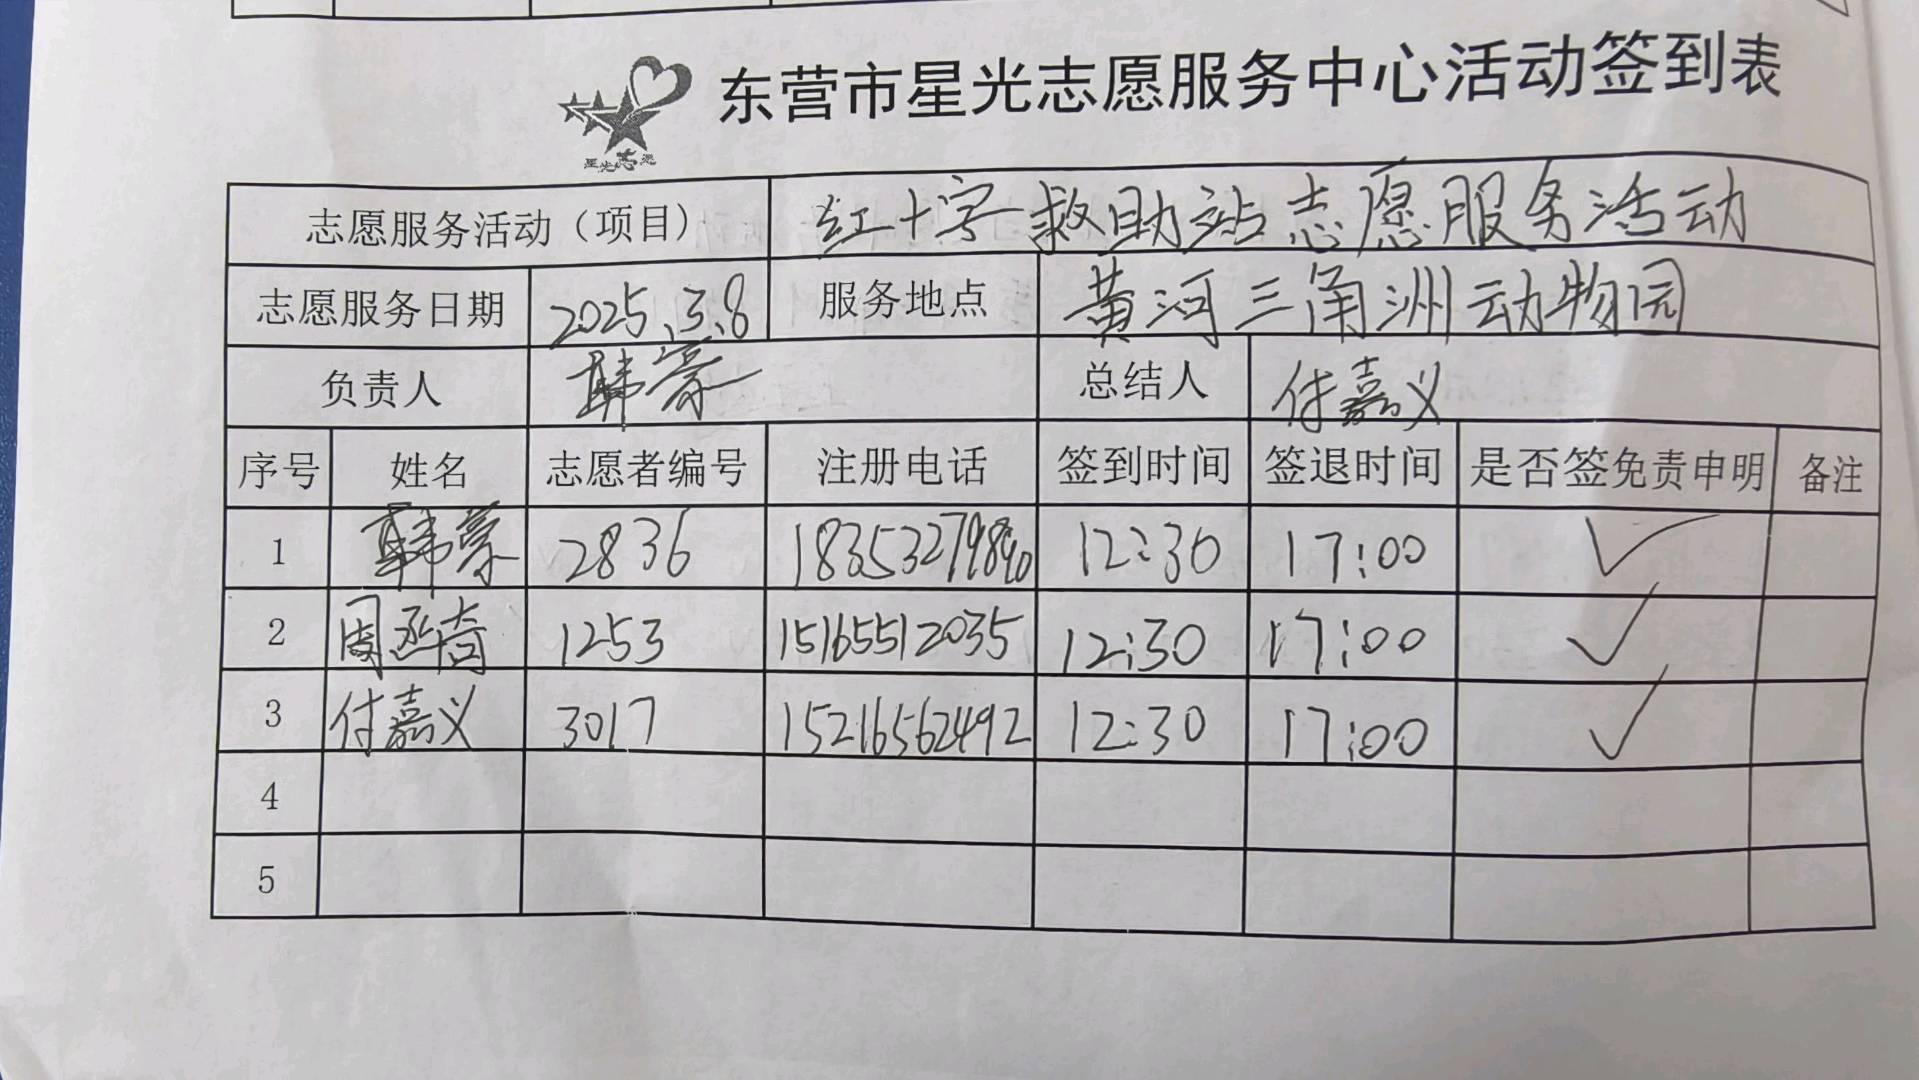 东营市星光志愿服务中心活动签到表
星光志愿
志愿服务活动（项目） 红十字救助站志愿服务活动
志愿服务日期 2025.3.8 服务地点 黄河三角洲动物园
负责人 韩豪 总结人 付嘉义
序号 姓名 志愿者编号 注册电话 签到时间 签退时间 是否签免责申明 备注
1 韩豪 2836 12:30 17:00 ✓
2 1253 15165512035 12:30 17:00 ✓
3 付嘉义 3017 15216562492 12:30 17:00 ✓
4
5